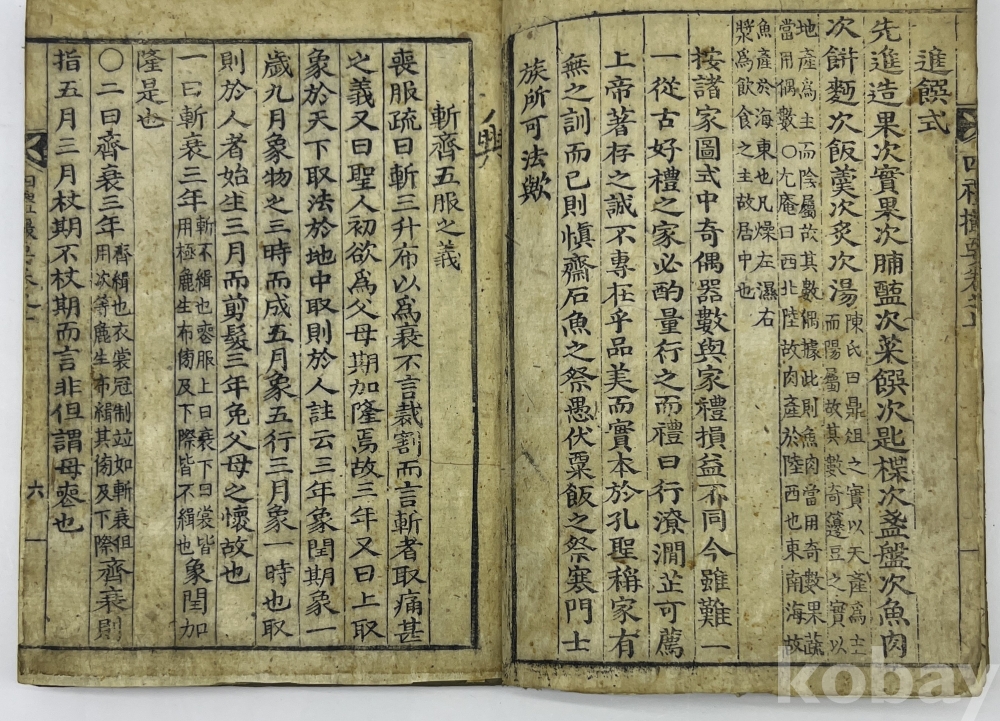 進饌式
先進造果次實果次脯醢次菜饌次匙楪次盞盤次魚肉
次餠麵次飯羹次炙次湯陳氏曰鼎俎之實以天產爲主
而陽屬故其數奇籩豆之實以
地產爲主而陰屬故其數偶據此則魚肉當用奇數果蔬
當用偶數〇尤庵曰西北陸故肉產於陸西也東南海故
魚產於海東也凡燥左濕右
漿爲飮食之主故居中也
按諸家圖式中奇偶器數與家禮損益不同今雖難一
一從古好禮之家必酌量行之而禮曰行潦澗芷可薦
上帝著存之誠不專在乎品美而實本於孔聖稱家有
無之訓而已則愼齋石魚之祭愚伏粟飯之祭寒門士
族所可法歟
斬齊五服之義
喪服疏曰斬三升布以爲衰不言裁割而言斬者取痛甚
之義又曰聖人初欲爲父母期加隆焉故三年又曰上取
象於天下取法於地中取則於人註云三年象閏期象一
歲九月象物之三時而成五月象五行三月象一時也取
則於人者始生三月而剪髮三年免父母之懷故也
一曰斬衰三年斬不緝也喪服上曰衰下曰裳皆
用極麁生布傍及下際皆不緝也象閏加
隆是也
〇二曰齊衰三年齊緝也衣裳冠制竝如斬衰但
用次等麁生布緝其傍及下際齊衰則
指五月三月杖期不杖期而言非但謂母喪也
六
kobay